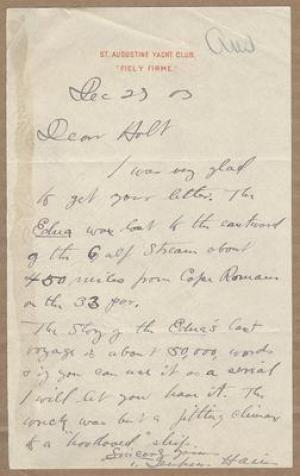 ST. AUGUSTINE YACHT CLUB.
"FIELY FIRME."
Ans
Dec 23 03
Dear Holt
I was very glad
to get your letter. The
Edna was lost to the eastward
of the Gulf Stream about
450 miles from Cape Romain
on the 33 par.
The Story of the Edna's last
voyage is about 50,000 words
if you can use it as a serial
I will let you have it. The
wreck was but a fitting climax
to a "hoodooed" ship.
Sincerely yours
Hains